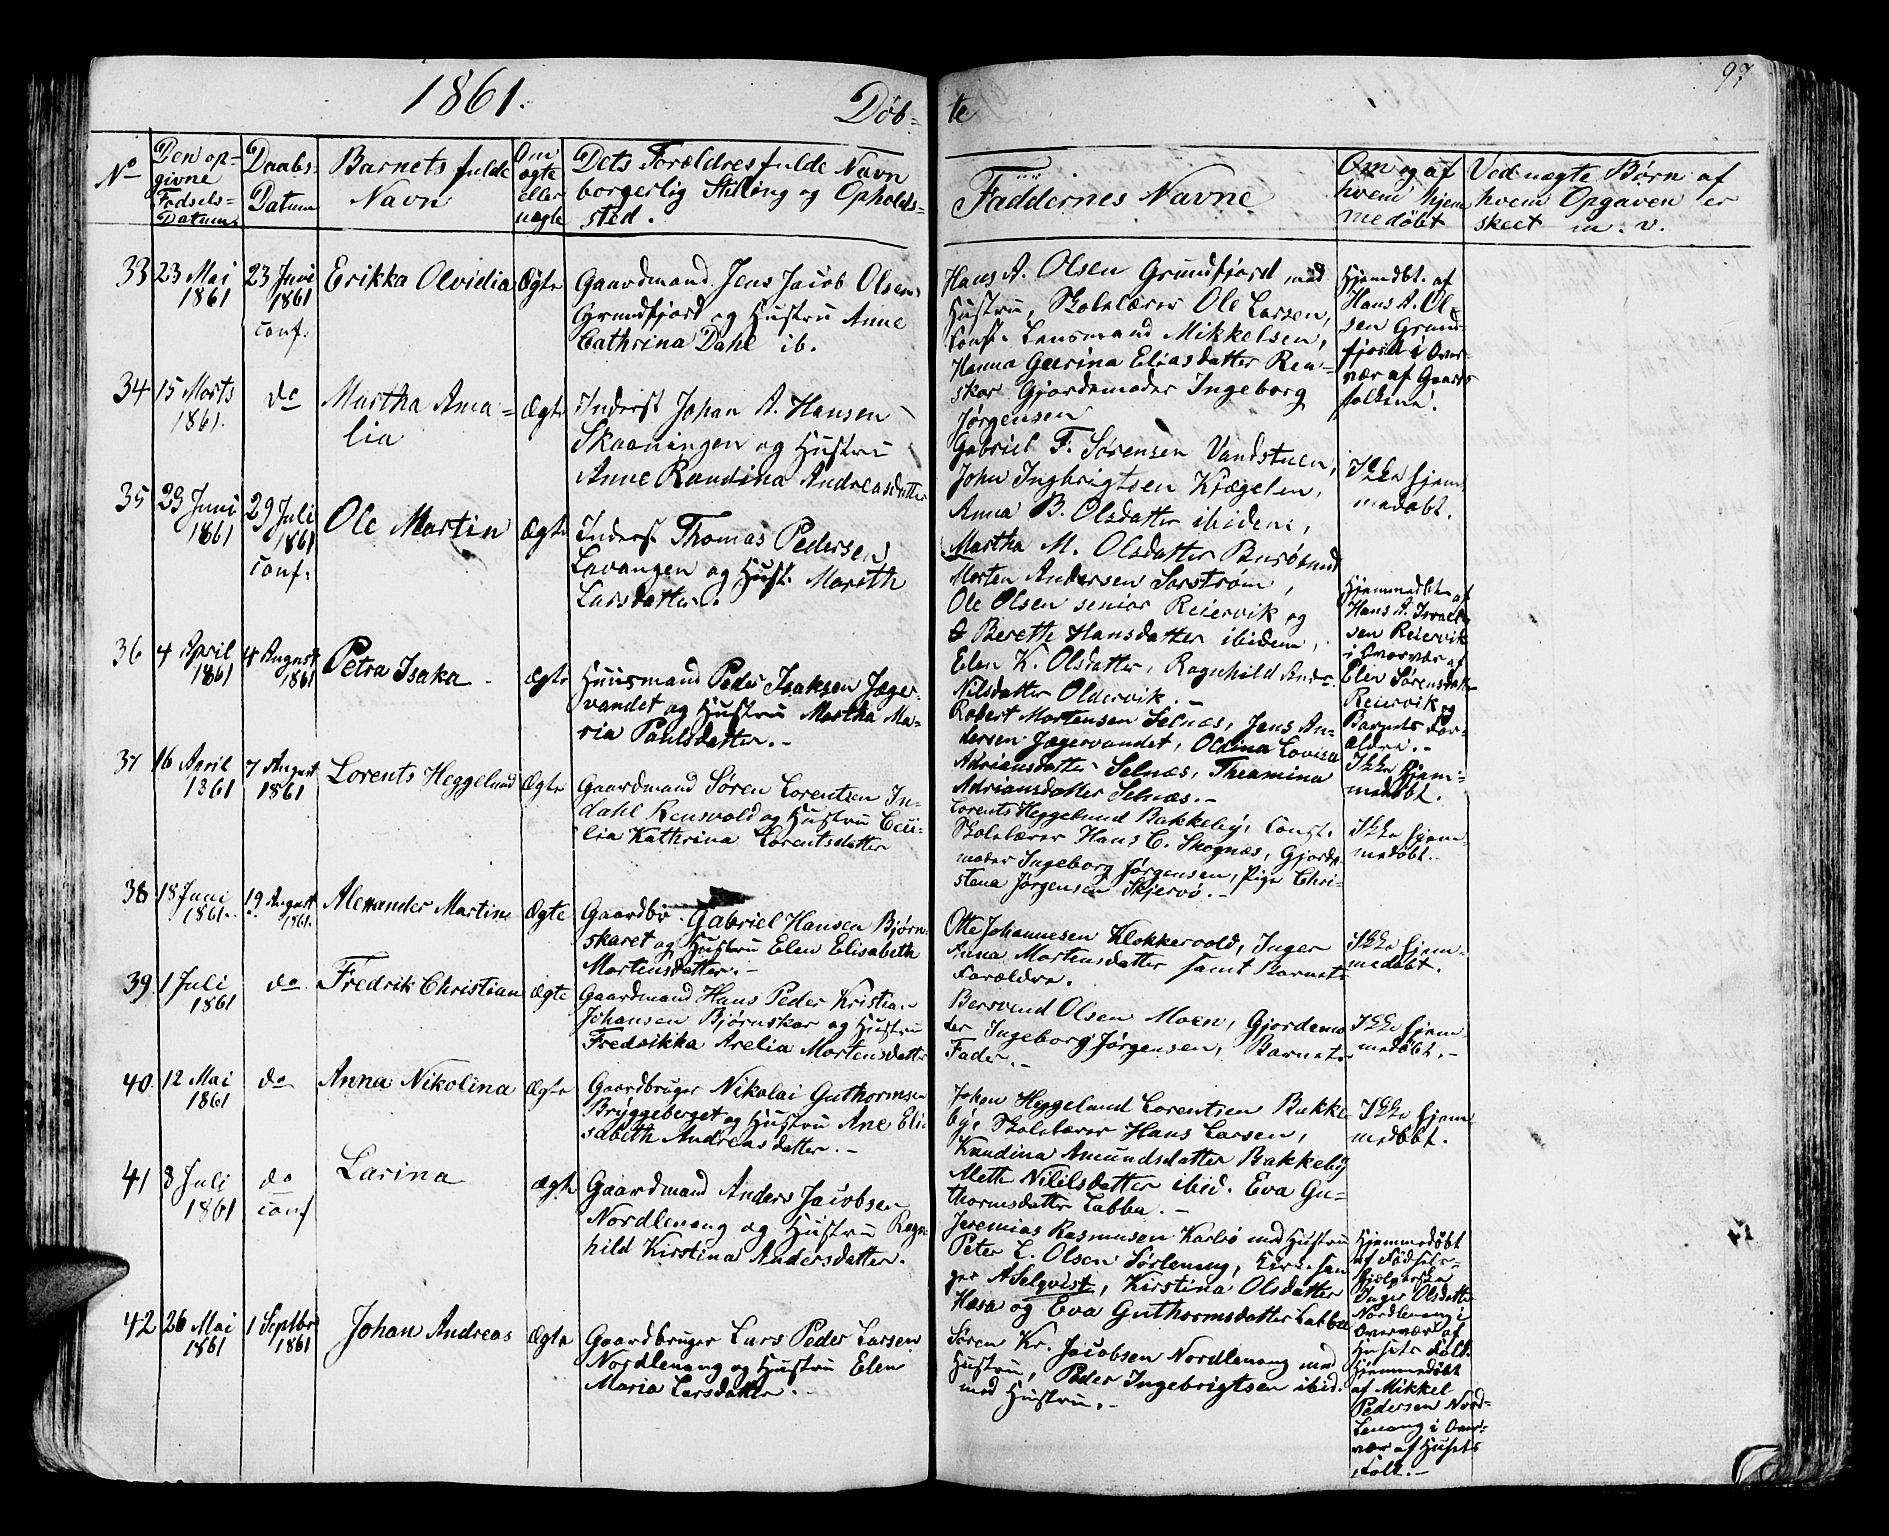 1861.
Döb-
te
97
No
Den op-
givne
Fødsels-
Datum.
Daabs-
Datum
Barnets fulde
Navn
Om
ægte
eller
uægte
Dets Forældres fulde Navn
borgerlig Stilling og Opholds-
sted.
Faddernes Navne
Om og af
hvem hjem
medøbt
Ved uægte Børn af
hvem Opgaven er
skeet m. v.
33
23 Mai
1861
23 Juni
1861
conf:
Erikka Olvidia
Ægte
Gaardmand Jens Jacob Olsen
Grundfjord og Hustru Anne
Cathrina Dahl ib.
Hans A. Olsen Grundfjord med
Hustru, Skolelærer Ole Larsen,
Const. Lensmand Mikkelsen,
Hanna Geerina Eliasdatter Ren-
skar Gjordemoder Ingeborg
Jørgensen
Hjemdbt. af
Hans A. Ol-
sen Grund-
fjord i Over-
vær af Gaards
folkene.
34
15 Marts
1861.
do
Martha Ama-
lia
Ægte
Inderst Johan A. Hansen
Skaaningen og Hustru
Anne Randina Andreasdatter
Gabriel F. Sørensen Vandstuen,
John Ingbrigtsen Kjægelen,
Anna B. Olsdatter ibidem,
Martha M. Olsdatter Burøsund
Ikke hjem-
medøbt.
35
23 Juni
1861
29 Juli
1861
conf:
Ole Martin
Ægte
Inderst Thomas Pedersen
Lavangen og Hust. Marith
Larsdatter.
Morten Andersen Sorstrøm,
Ole Olsen senior Reiervik og
Berethe Hansdatter ibidem,
Elen K. Olsdatter, Ragnhild Andr.
Nilsdatter Oldervik.-
Hjemmedbt. af
Hans A. Israel-
sen Reiervik
i Overvær af
Elen Sørensdatr
Reiervik og
Barnets For-
ældre.-
36
4 April
1861
4 August
1861
Petra Isaka -
Ægte
Huusmand Peder Isaksen Jæger-
vandet og Hustru Martha Ma-
ria Paulsdatter.-
Robert Mortensen Selnæs, Jens An-
dersen Jægervandet, Oldina Lovisa
Adriansdatter Selnæs, Theamina
Adriansdatter Selnæs.-
Ikke hjem-
medøbt.
37
16 April
1861
7 August
1861
Lorents Heggelund
Ægte
Gaardmand Søren Lorentsen In-
dahl Rensvold og Hustru Ceci-
lia Kathrina Lorentsdatter
Lorents Heggelund Bakkeby, Const.
Skolelærer Hans C. Skognæs, Gjorde-
moder Ingeborg Jørgensen, Pige Chri-
stena Jørgensen Skjervø.-
Ikke hjem-
medøbt.
38
18 Juni
1861.
19 August
1861.
Alexander Martin
Ægte
Gaardbr. Gabriel Hansen Bjørn-
skaret og Hustru Elen Elisabeth
Mortensdatter.-
Otte Johannesen Klokkervold, Inger
Anna Mortensdatter samt Barnets
Forældre.
Ikke hjem-
medøbt.
39
1 Juli
1861
do
Fredrik Christian
Ægte
Gaardmand Hans Peder Kristian
Johansen Bjørnskar og Hustru
Fredrikka Arelia Mortensdatter
Bersvend Olsen Moen, Gjordemo-
der Ingeborg Jørgensen, Barnets
Fader.-
Ikke hjem-
medøbt.-
40.
12 Mai
1861
do
Anna Nikolina
Ægte
Gaardbruger Nikolai Guthormsen
Bryggeberget og Hustru Ane Eli-
sabeth Andreasdatter.-
Johan Heggelund Lorentsen Bakke
by, Skolelærer Hans Larsen,
Kundina Amundsdatter Bakkeby
Alette Nililsdatter ibid. Eva Gu-
thormsdatter Labba.-
Ikke hjem-
medøbt.
41
8 Juli
1861
do
conf
Larina
Ægte
Gaardmand Anders Jacobsen
Nordlenang og Hustru Ragn-
hild Kirstina Andersdatter.
Jeremias Rasmusen Karlsø med Hustru
Peter L. Olsen Sørlenang, Kirkesan
ger A Selqvist, Kirstina Olsdatter
Hæsa og Eva Guthormsdatter Labba
Hjemmedøbt
af Fødsels-
hjælperske
Inger Olsdatte
Nordlenang i
Overvær af
Husets Folk.
42
26 Mai
1861
1 Septbr
1861
Johan Andreas
Ægte
Gaardbruger Lars Peder Larsen
Nordlenang og Hustru Elen
Maria Larsdatter.-
Søren Kr. Jacobsen Nordlenang med
Hustru, Peder Ingebrigtsen ibid.
med Hustru.-
Hjemmedøbt
af Mikkel
Pedersen Nord-
Lenang i Over-
vær af Husets
Folk.-